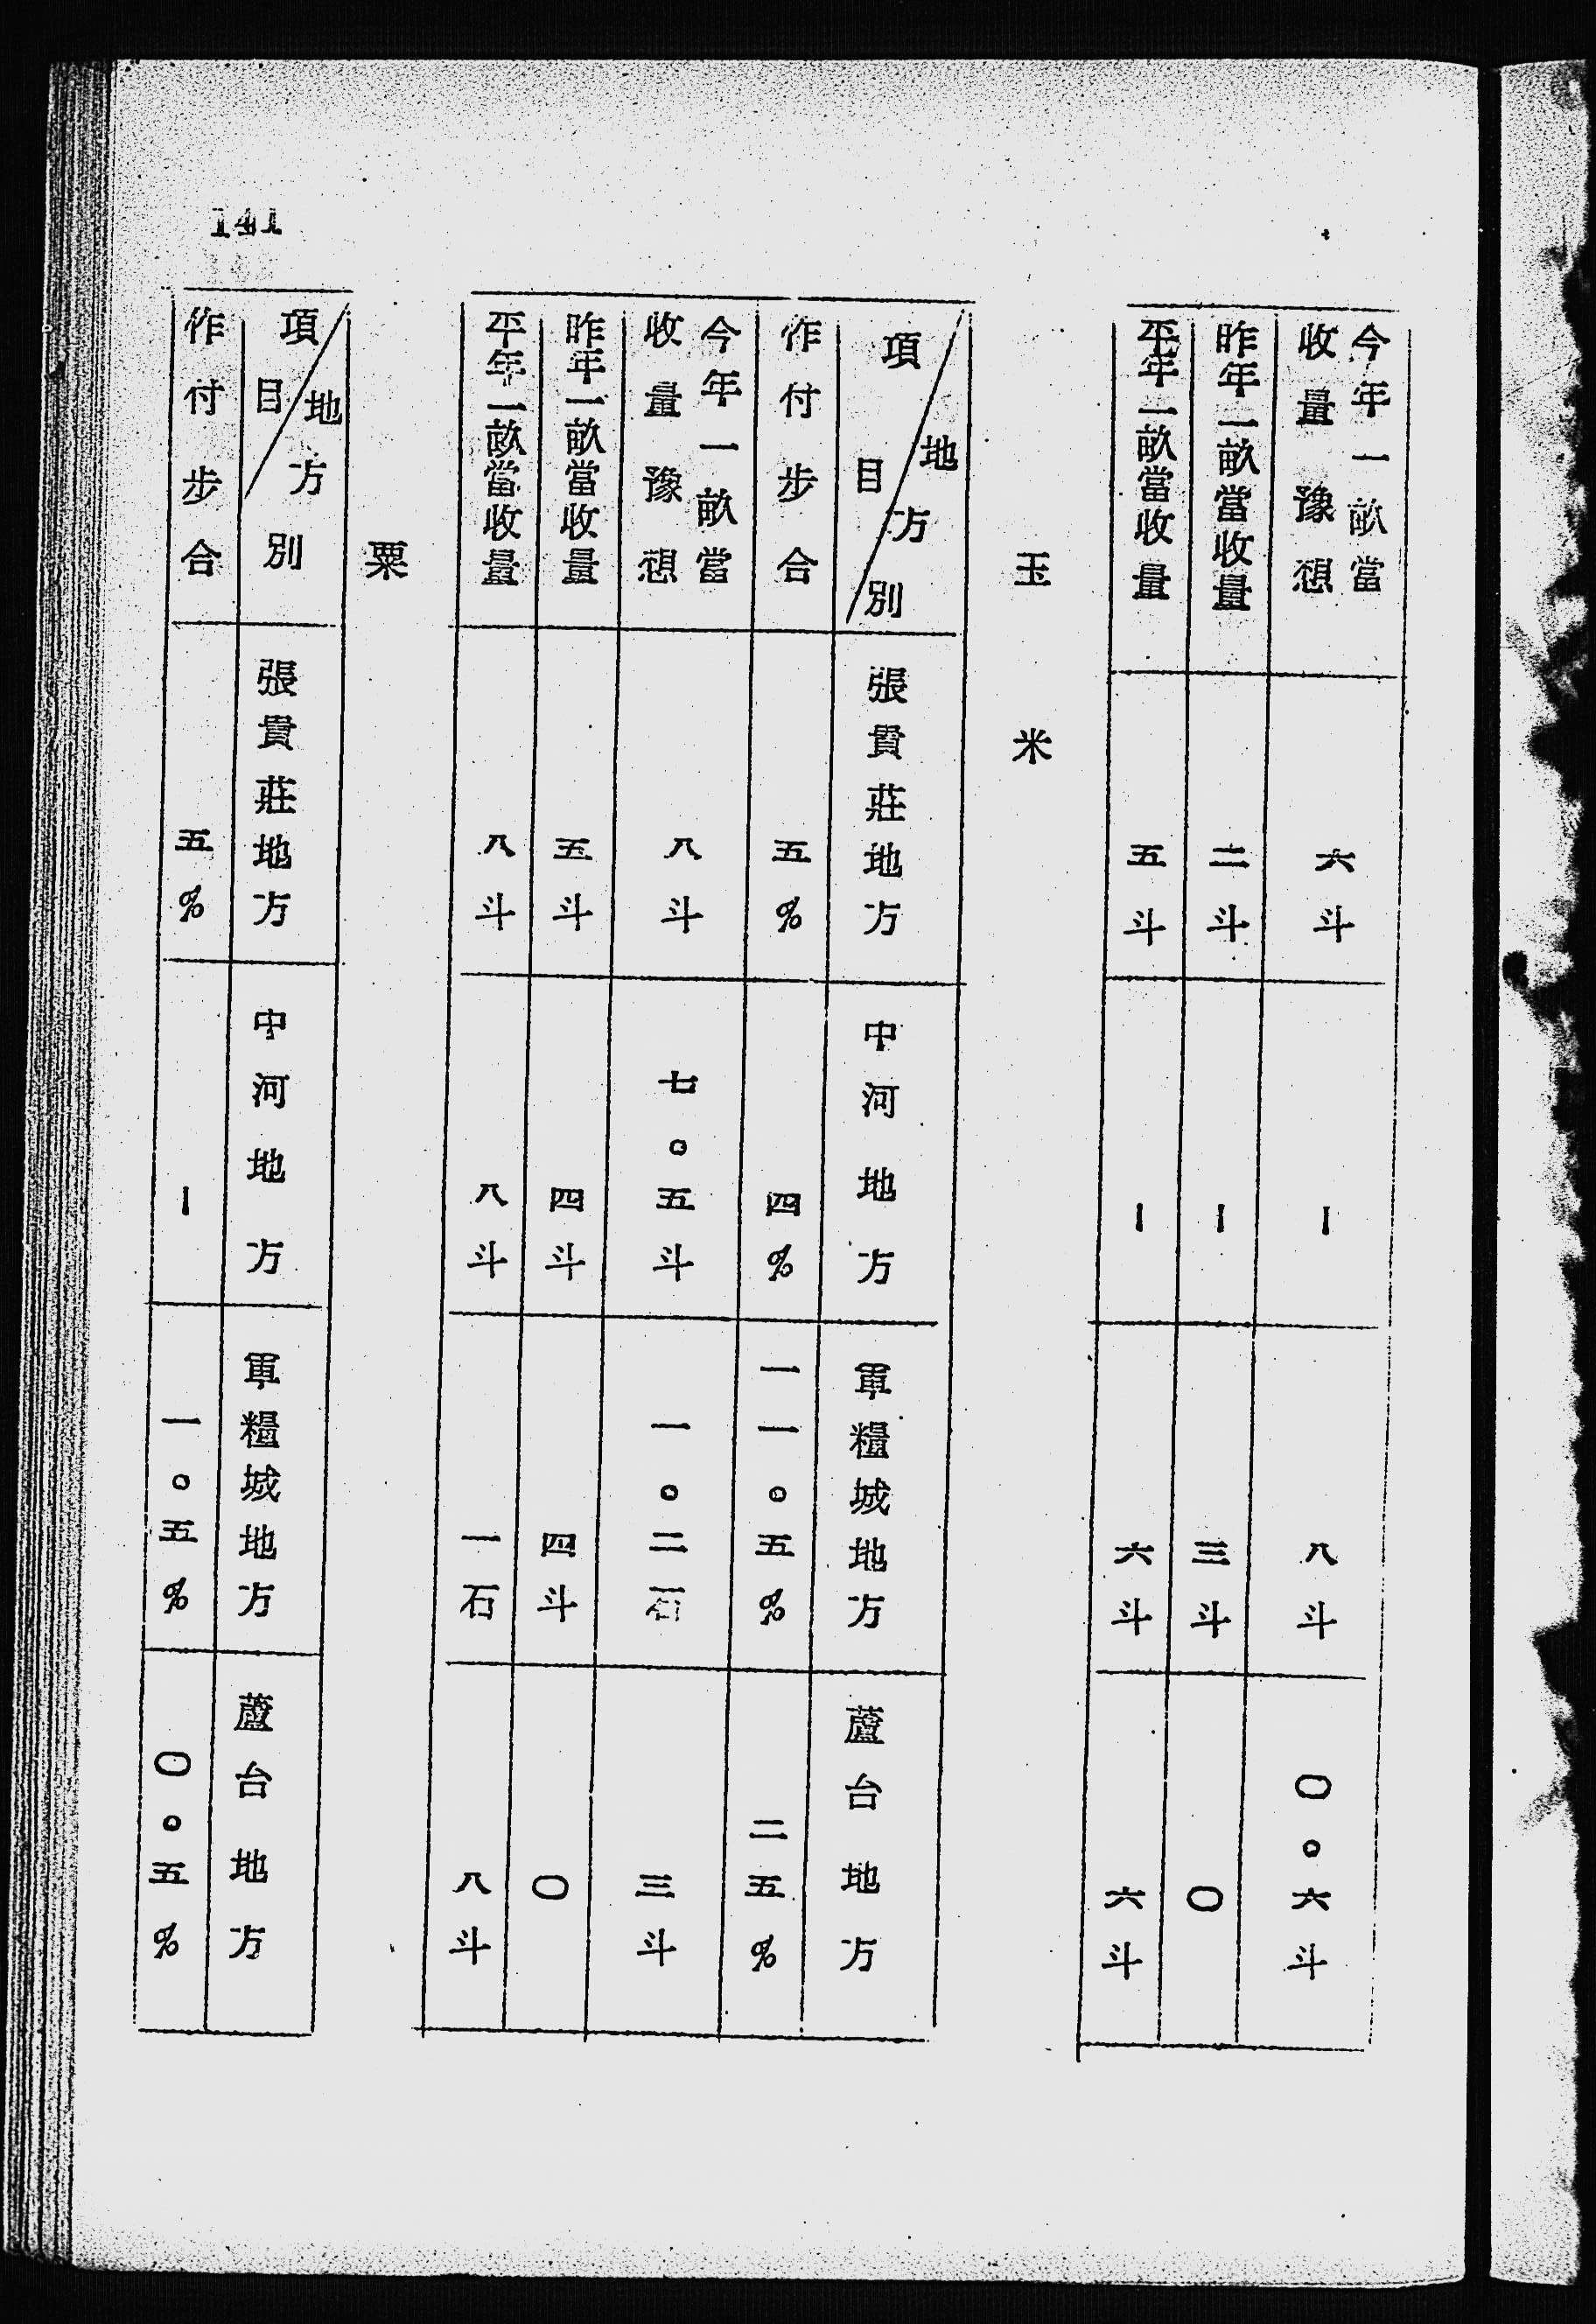 141
今年一畝當
收量豫想
六斗
－
八斗
〇。六斗
昨年一畝當收量
二斗
－
三斗
〇
平年一畝當收量
五斗
－
六斗
六斗
玉米
項目
地方別
張貴莊地方
中河地方
軍糧城地方
蘆台地方
作付步合
五%
四%
一一。五%
二五%
今年一畝當
收量豫想
八斗
七。五斗
一。二石
三斗
昨年一畝當收量
五斗
四斗
四斗
〇
平年一畝當收量
八斗
八斗
一石
八斗
粟
項目
地方別
張貴莊地方
中河地方
軍糧城地方
蘆台地方
作付步合
五%
－
一。五%
〇。五%